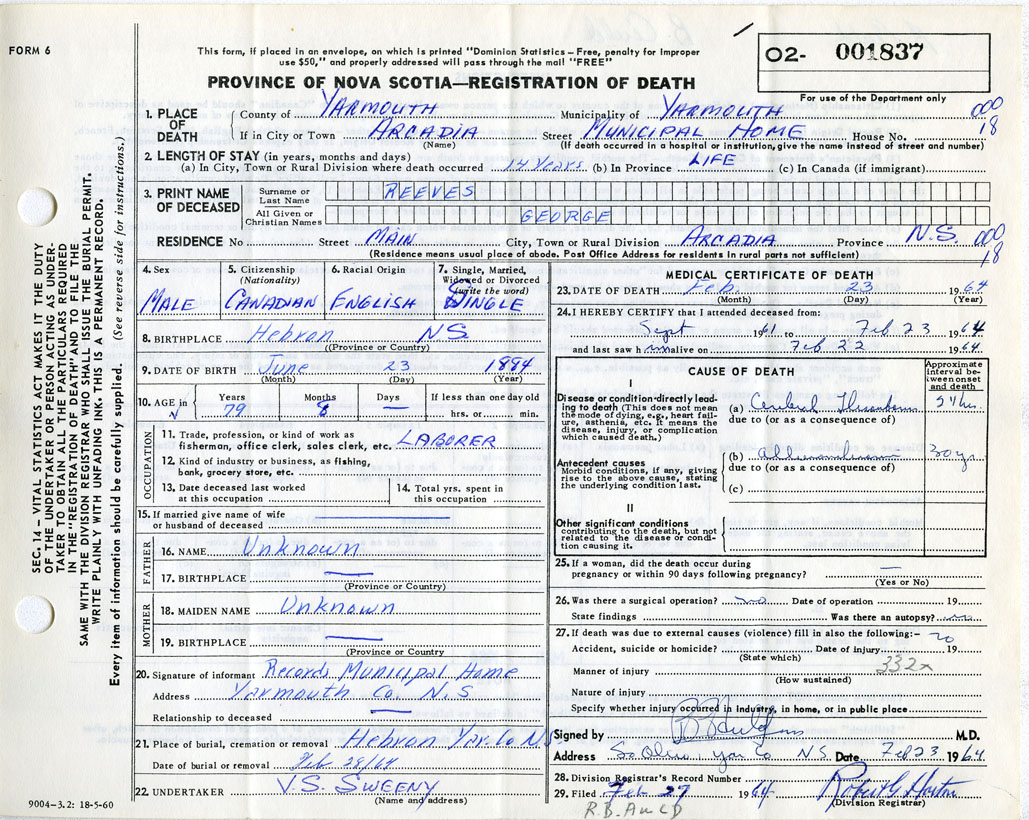 FORM 6
This form, if placed in an envelope, on which is printed "Dominion Statistics – Free, penalty for improper
use $50," and properly addressed will pass through the mail "FREE"
PROVINCE OF NOVA SCOTIA—REGISTRATION OF DEATH
O2- 001837
For use of the Department only
1. PLACE OF DEATH
County of YARMOUTH Municipality of YARMOUTH 000
If in City or Town ARCADIA Street MUNICIPAL HOME House No. 18
(Name) (If death occurred in a hospital or institution, give the name instead of street and number)
2. LENGTH OF STAY (in years, months and days)
(a) In City, Town or Rural Division where death occurred 14 Years (b) In Province LIFE (c) In Canada (if immigrant)
3. PRINT NAME OF DECEASED
Surname or Last Name REEVES
All Given or Christian Names GEORGE
RESIDENCE No Street MAIN City, Town or Rural Division ARCADIA Province N.S. 000
(Residence means usual place of abode. Post Office Address for residents in rural parts not sufficient) 18
4. Sex MALE
5. Citizenship (Nationality) CANADIAN
6. Racial Origin ENGLISH
7. Single, Married, Widowed or Divorced (write the word) SINGLE
8. BIRTHPLACE Hebron N.S.
(Province or Country)
9. DATE OF BIRTH June 23 1884
(Month) (Day) (Year)
10. AGE in Years 79 Months 8 Days — If less than one day old hrs. or min.
OCCUPATION
11. Trade, profession, or kind of work as
fisherman, office clerk, sales clerk, etc. LABORER
12. Kind of industry or business, as fishing,
bank, grocery store, etc.
13. Date deceased last worked
at this occupation
14. Total yrs. spent in
this occupation
15. If married give name of wife
or husband of deceased
FATHER
16. NAME Unknown
17. BIRTHPLACE
(Province or Country)
MOTHER
18. MAIDEN NAME Unknown
19. BIRTHPLACE
(Province or Country
20. Signature of informant Records Municipal Home
Address Yarmouth Co. N.S
Relationship to deceased
21. Place of burial, cremation or removal Hebron Yar. Co N.S
Date of burial or removal Feb 28/64
22. UNDERTAKER V.S. SWEENY
(Name and address)
9004–3.2: 18-5-60
MEDICAL CERTIFICATE OF DEATH
23. DATE OF DEATH Feb. 23 1964
(Month) (Day) (Year)
24. I HEREBY CERTIFY that I attended deceased from:
Sept 1961 to Feb 23 1964
and last saw h im alive on Feb 22 1964
CAUSE OF DEATH
Approximate interval between onset and death
I
Disease or condition directly leading to death (This does not mean the mode of dying, e.g., heart failure, asthenia, etc. It means the disease, injury, or complication which caused death.)
(a) Cerebral 24 hrs.
due to (or as a consequence of)
Antecedent causes
Morbid conditions, if any, giving rise to the above cause, stating the underlying condition last.
(b) 30 yrs
due to (or as a consequence of)
(c)
II
Other significant conditions
contributing to the death, but not related to the disease or condition causing it.
25. If a woman, did the death occur during
pregnancy or within 90 days following pregnancy? —
(Yes or No)
26. Was there a surgical operation? no Date of operation 19
State findings Was there an autopsy? no
27. If death was due to external causes (violence) fill in also the following:- no
Accident, suicide or homicide? Date of injury 19
(State which)
Manner of injury 332x
(How sustained)
Nature of injury
Specify whether injury occurred in industry, in home, or in public place
Signed by M.D.
Address So Ohio Yar Co N.S. Date Feb 23 1964
28. Division Registrar's Record Number
29. Filed Feb 27 1964 Robert G. Horton
(Division Registrar)
R.B. AULD
SEC. 14 – VITAL STATISTICS ACT MAKES IT THE DUTY
OF THE UNDERTAKER OR PERSON ACTING AS UNDER-
TAKER TO OBTAIN ALL THE PARTICULARS REQUIRED
IN THE "REGISTRATION OF DEATH" AND TO FILE THE
SAME WITH THE DIVISION REGISTRAR WHO SHALL ISSUE THE BURIAL PERMIT.
WRITE PLAINLY WITH UNFADING INK. THIS IS A PERMANENT RECORD.
Every item of information should be carefully supplied. (See reverse side for instructions.)